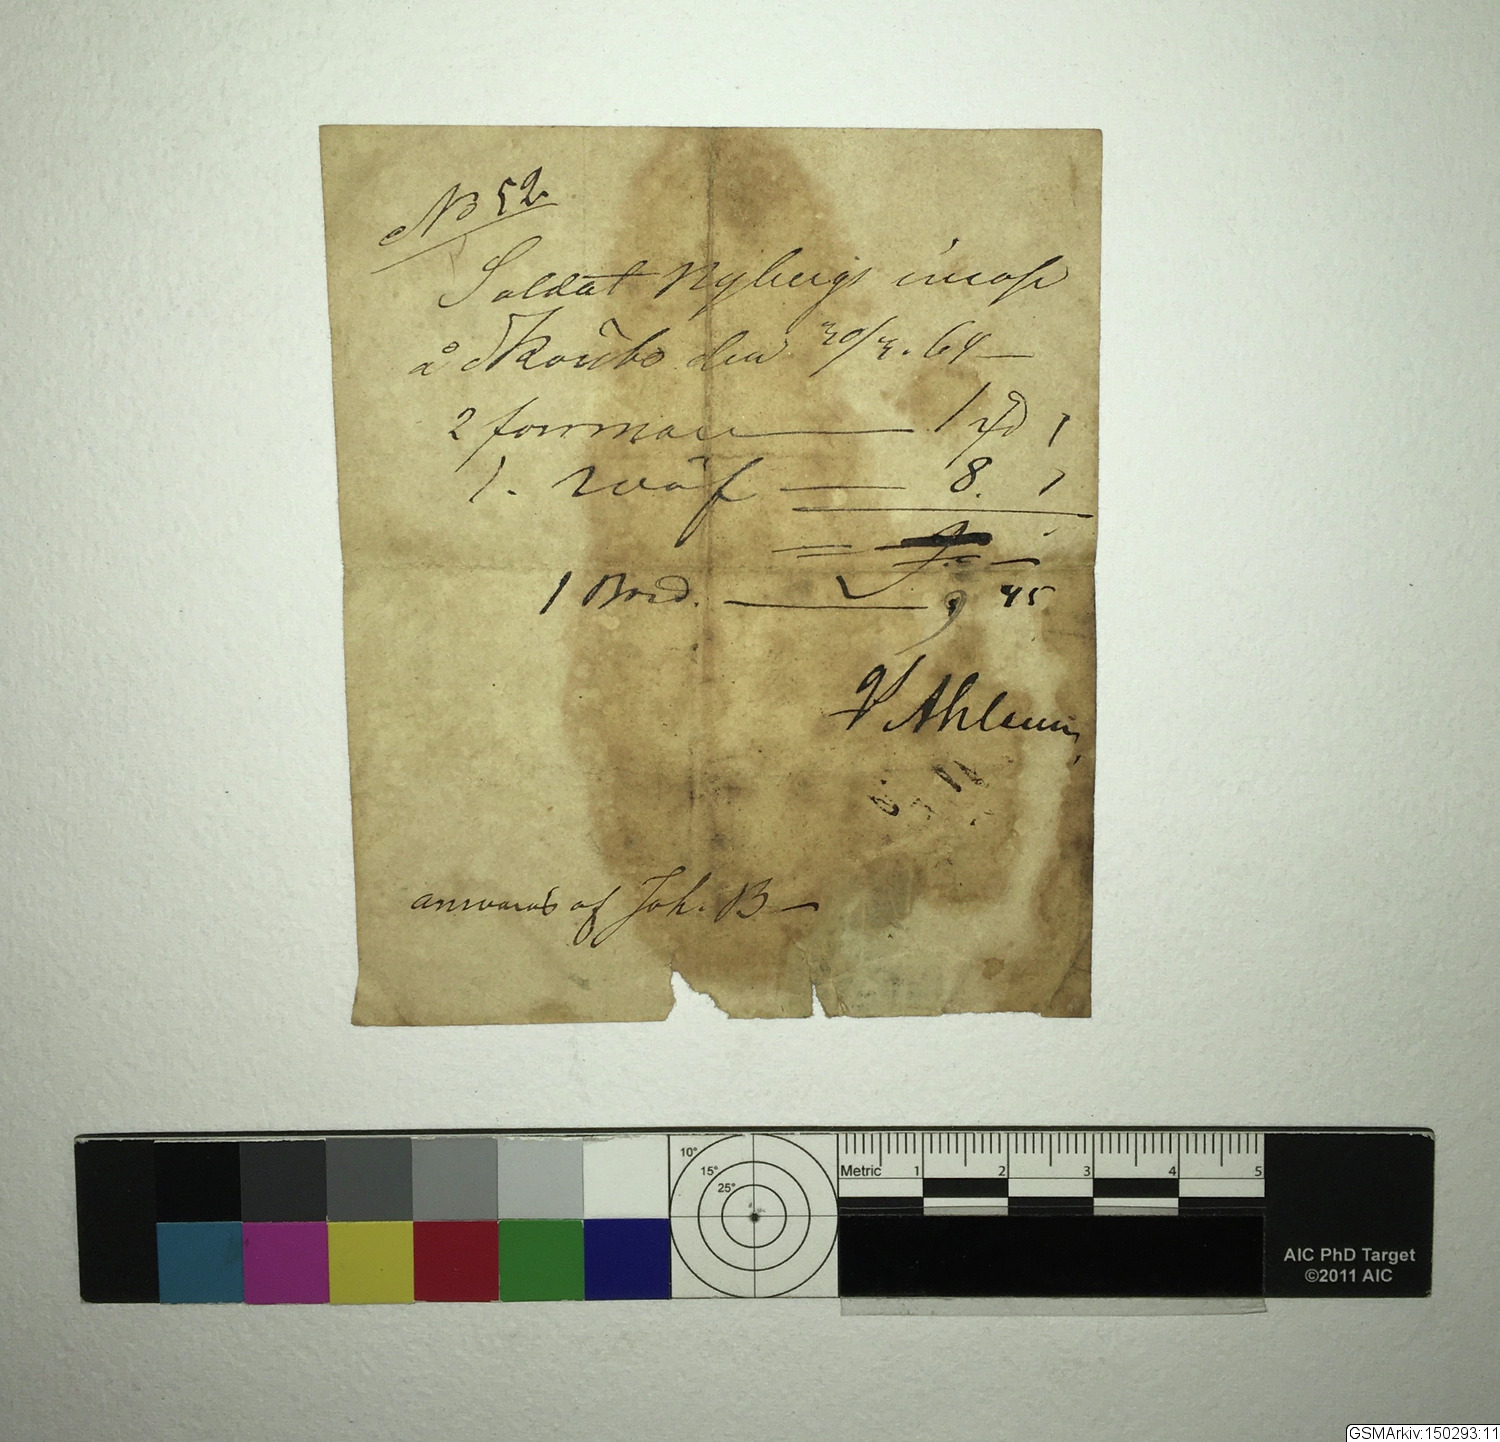 No 52
Soldat Nybergs incop
å Skoübo den 30/3. 64
2 forrman 1 rd
1. räf 8.
1 Bord. 9 45
Ahlem
anwaras af Joh. B
10°
15°
25°
Metric 1 2 3 4 5
AIC PhD Target
©2011 AIC
GSMArkiv:150293:11